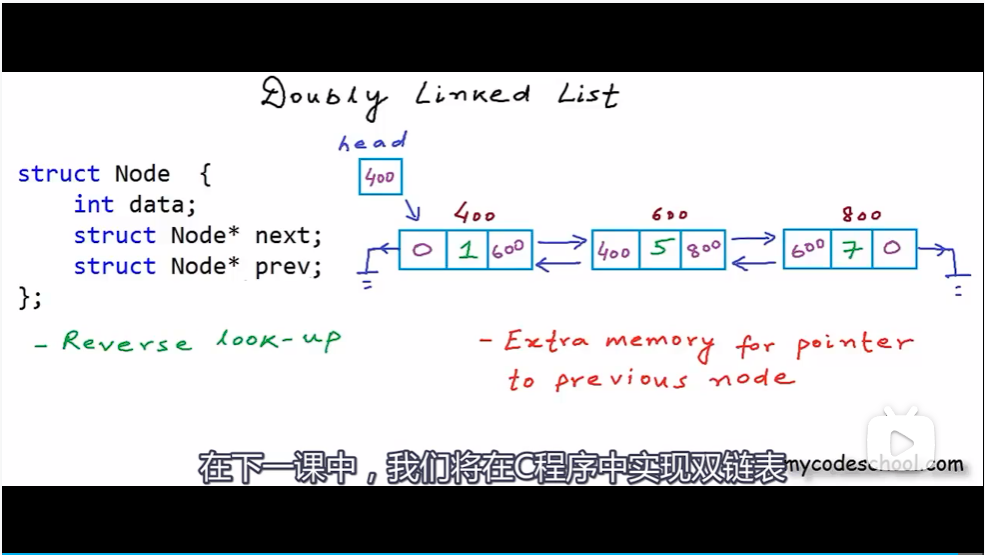 Doubly Linked List
head
400
struct Node {
int data;
struct Node* next;
struct Node* prev;
};
400 600 800
0 1 600 400 5 800 600 7 0
- Reverse look-up
- Extra memory for pointer
to previous node
在下一课中，我们将在C程序中实现双链表
mycodeschool.com